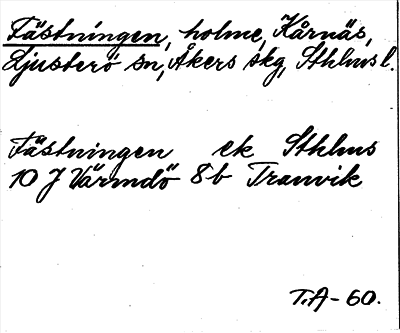 Fästningen, holme, Kårnäs,
Ljusterö sn, Åkers skg, Sthlms l.
Fästningen ek Sthlms
10 J Värmdö 8b Tranvik
T.A-60.